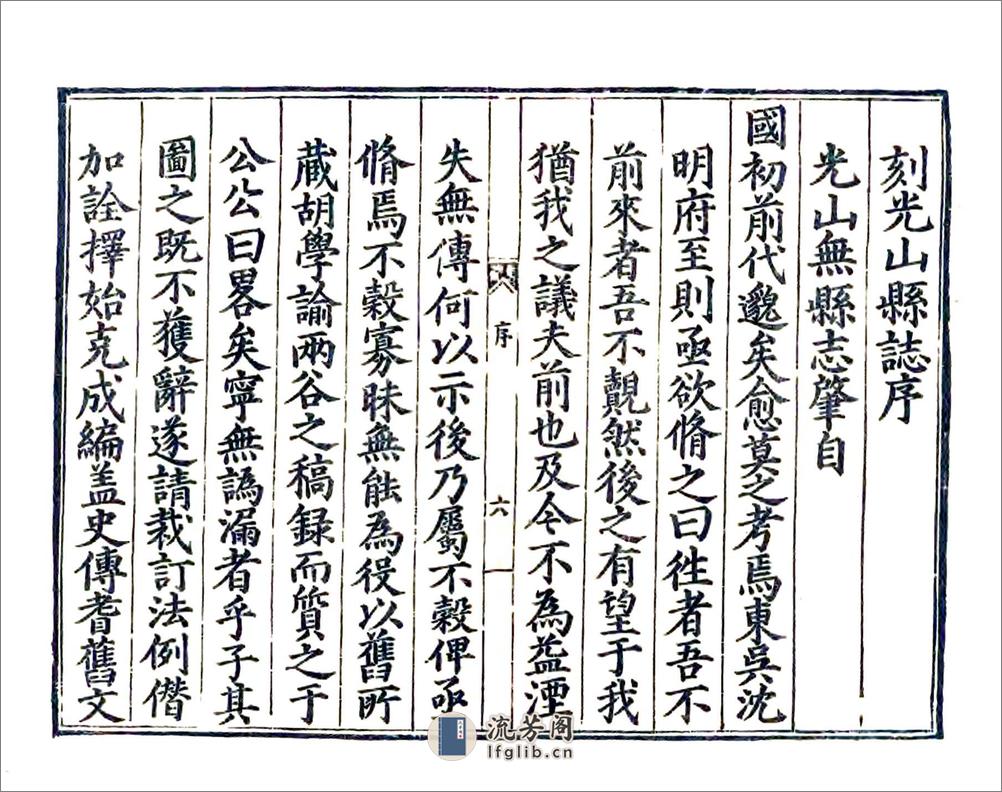 刻光山縣誌序
光山無縣志肇自
國初前代邈矣愈莫之考焉東吳沈
明府至則亟欲脩之曰徃者吾不
前來者吾不覿然後之有望于我
猶我之議夫前也及今不為益湮
序
六
一
失無傳何以示後乃屬不穀俾亟
脩焉不穀寡昧無能為役以舊所
藏胡學諭兩谷之稿録而質之于
公公曰畧矣寧無譌漏者乎子其
圖之既不獲辭遂請裁訂法例僣
加詮擇始克成編盖史傳耆舊文
流芳阁
lfglib.cn